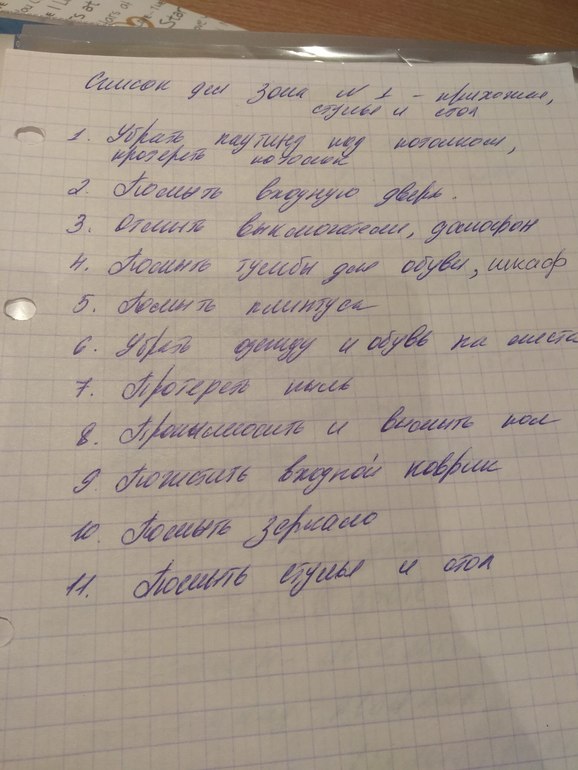 Список дел Зона № 1 - прихожая,
стулья и стол
1. Убрать паутину под потолком,
протереть потолок
2. Помыть входную дверь.
3. Отмыть выключатели, домофон
4. Помыть тумбы для обуви, шкаф
5. Помыть плинтуса
6. Убрать одежду и обувь на места
7. Протереть пыль
8. Пропылесосить и вымыть пол
9 Почистить входной коврик
10. Помыть зеркало
11. Помыть стулья и стол